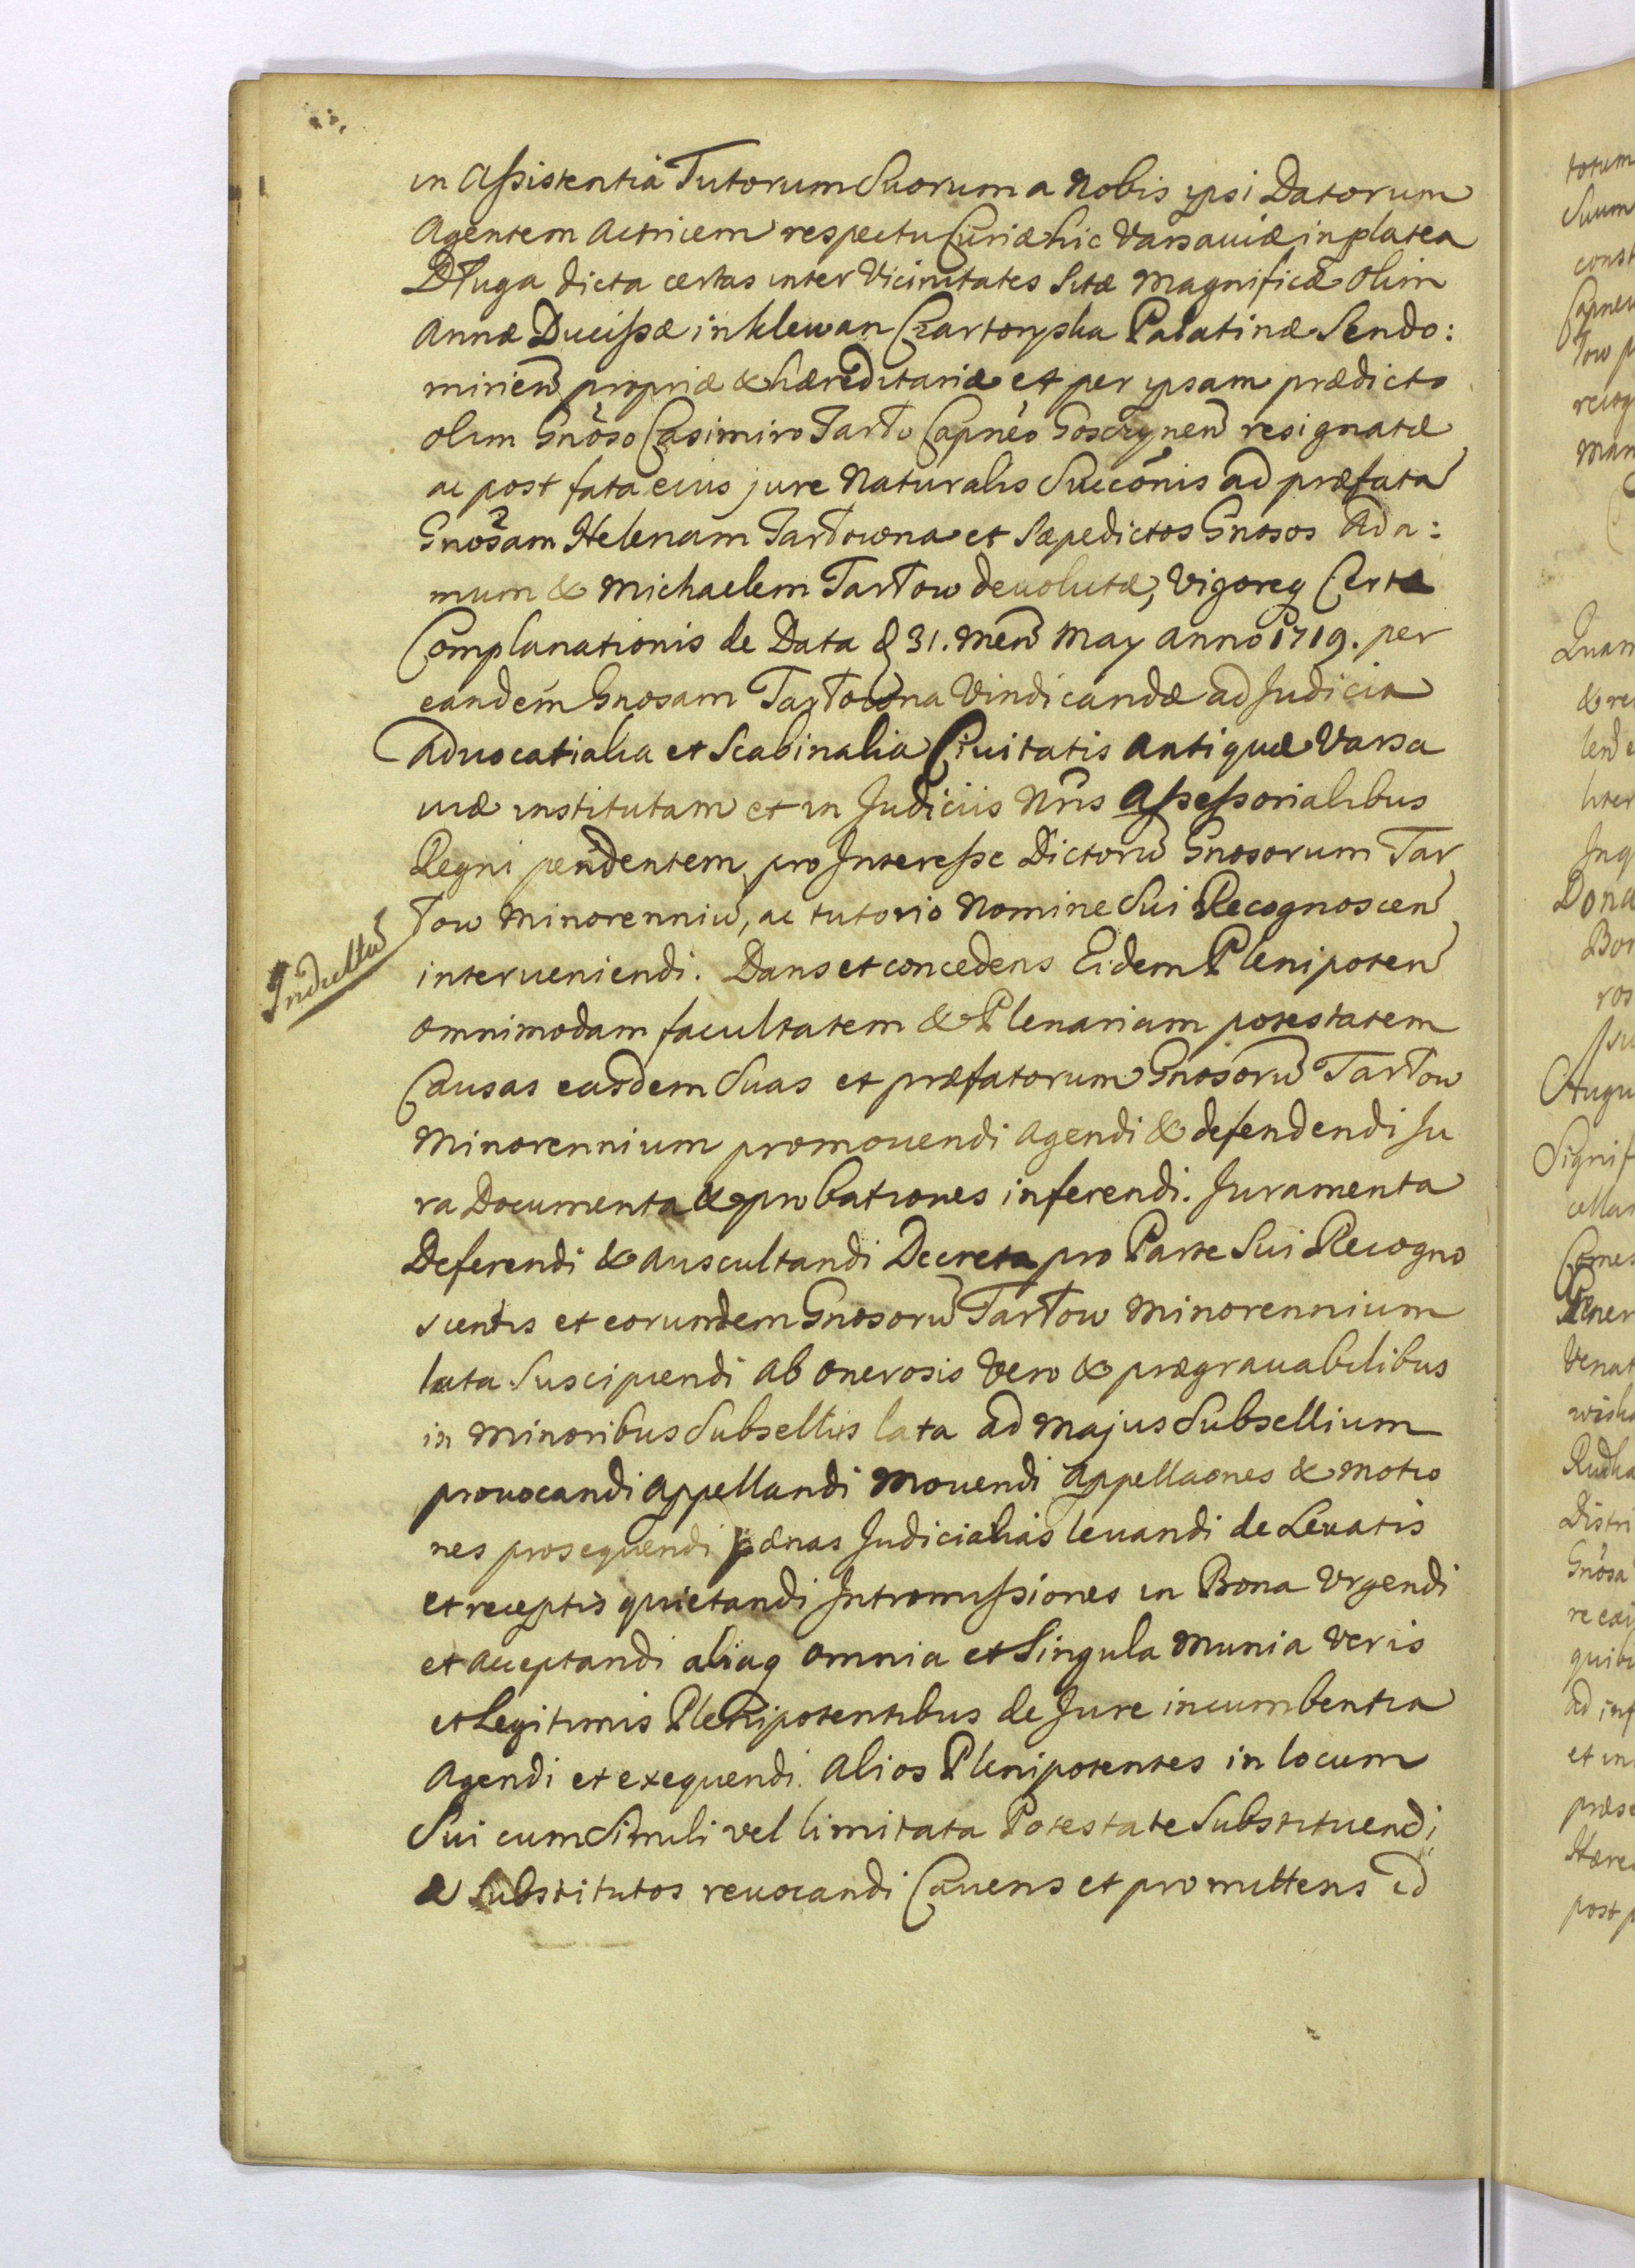 in Assistentia Tutorum Suorum a Nobis ipsi Datorum
Agentem Actricem respectu Curiæ hic Varsaviæ in platea
Długa dicta certas inter Vicinitates Sitæ Magnificæ olim
Annæ Ducissæ in Klewan Czartoryska Palatinæ Sendo:
mirien propriæ & hæreditariæ et per ipsam prædicto
olim Gnoso Casimiro Tarło Capneo Goszczynen resignatæ
ac post fata eius jure Naturalis Succonis ad præfata
Gnosam Helenam Tarłowna et Sæpedictos Gnosos Ada:
mum & Michaelem Tarłow devolutæ, Vigoreq Certæ
Complanationis de Data 31. Men May Anno 1719. per
eandem Gnosam Tarłowna Vindicandæ ad Judicia
Advocatialia et Scabinalia Civitatis Antiquæ Varsa
viæ institutam et in Judiciis Nris Assessorialibus
Regni pendentem, pro Interesse Dictoru Gnosorum Tar
łow Minorenniu, ac tutorio Nomine Sui Recognoscen
Inductu
interveniendi. Dans et concedens Eidem Plenipoten
omnimodam facultatem & Plenariam potestatem
Causas easdem Suas et præfatorum Gnosoru Tarłow
Minorennium promovendi agendi & defendendi Ju
ra Documenta & probationes inferendi. Juramenta
Deferendi & auscultandi Decreta pro Parte Sui Recogno
scentis et eorundem Gnosoru Tarłow Minorennium
lata Suscipiendi ab onerosis Vero & prægravabilibus
in Minoribus Subselliis lata ad Majus Subsellium
provocandi Appellandi Movendi Appellaones & Motio
nes prosequendi pænas Judicialias levandi de Levatis
et receptis quietandi Intromissiones in Bona Urgendi
et acceptandi aliaq omnia et Singula Munia Veris
et Legitimis Plenipotentibus de Jure incumbentia
Agendi et exequendi. Alios Plenipotentes in locum
Sui cum Simili vel limitata Potestate Substituendi
& Substitutos revocandi Cavens et promittens id